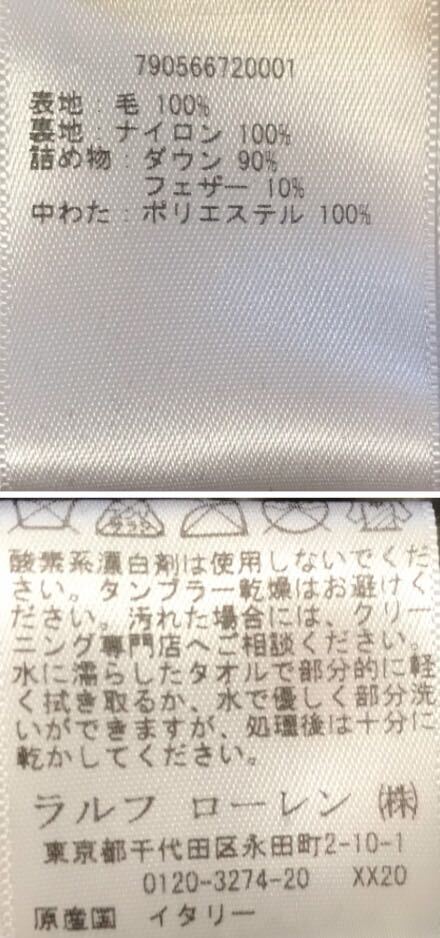 790566720001
表地：毛 100%
裏地：ナイロン 100%
詰め物：ダウン 90%
フェザー 10%
中わた：ポリエステル 100%
酸素系漂白剤は使用しないでくだ
さい。タンブラー乾燥はお避けく
ださい。汚れた場合には、クリー
ニング専門店へご相談ください。
水に濡らしたタオルで部分的に軽
く拭き取るか、水で優しく部分洗
いができますが、処理後は十分に
乾かしてください。
ラルフ ローレン ㈱
東京都千代田区永田町2-10-1
0120-3274-20 XX20
原産国 イタリー